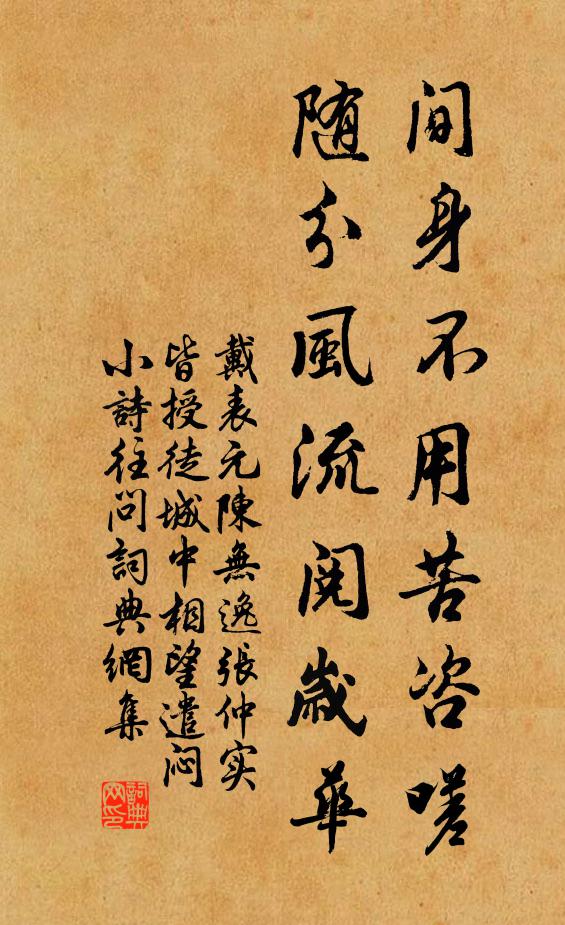 间身不用苦咨嗟
随分風流閱歲華
戴表元陳無逸張仲实
皆授徒城中相望遣闷
小詩往问詞典網集
詞典
网印